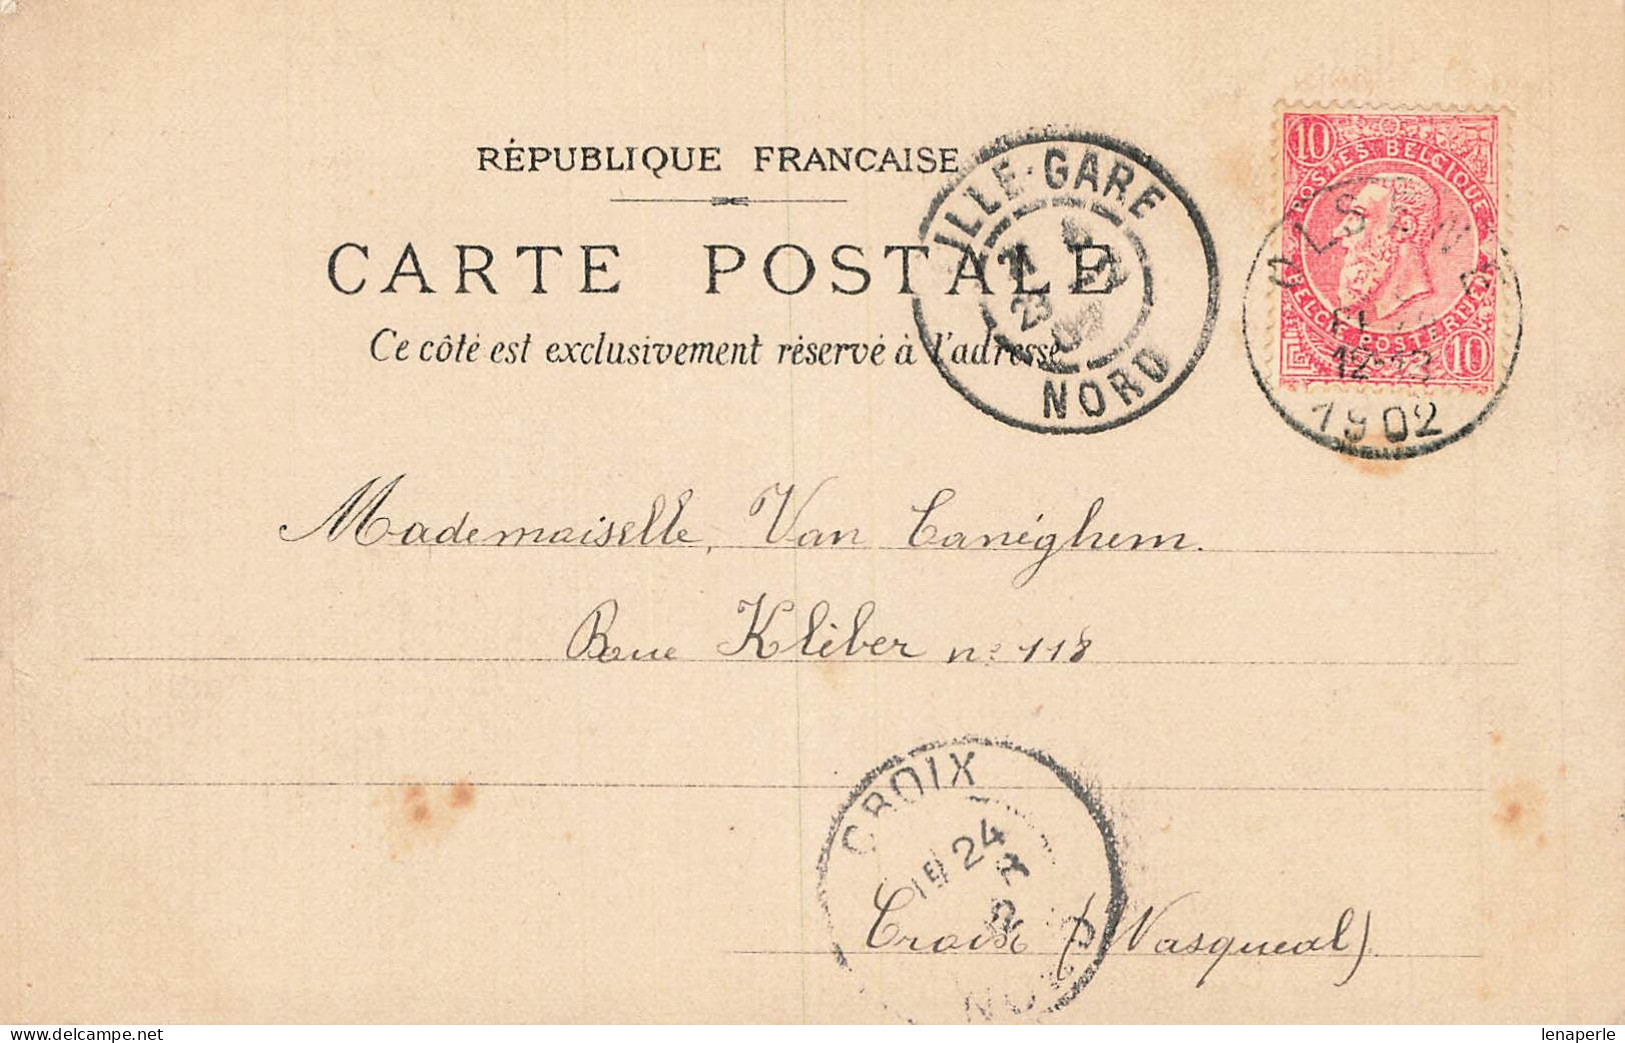 RÉPUBLIQUE FRANCAISE
CARTE POSTALE
Ce côté est exclusivement réservé à l'adresse
LILLE-GARE
23
NORD
10 10
POSTES BELGIQUE
BELGIE POSTERIJEN
10
12-13
1902
Mademaiselle, Van Caneghem.
Rue Kléber nº 118
CROIX
19 24
NORD
Croix (Wasqueal)
delcampe.net
lenaperle